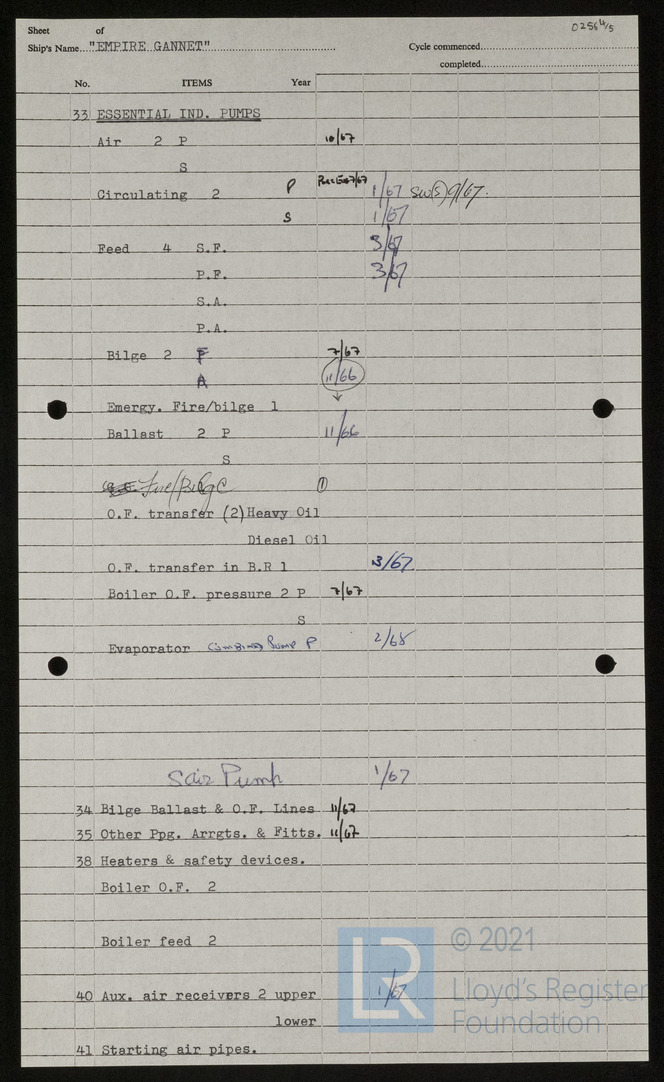 Sheet of 0256 4/5
Ship's Name..."EMPIRE GANNET" Cycle commenced
completed
No. ITEMS Year
33 ESSENTIAL IND. PUMPS
Air 2 P 10/67
S
Circulating 2 P 7/67 1/67 SW(S) 9/67.
S 1/67
Feed 4 S.F. 3/67
P.F. 3/67
S.A.
P.A.
Bilge 2 F 7/67
A 11/66
Emergy. Fire/bilge 1
Ballast 2 P 11/66
S
Fire/Bilge
O.F. transfer (2) Heavy Oil
Diesel Oil
O.F. transfer in B.R 1 3/67
Boiler O.F. pressure 2 P 7/67
S
Evaporator COMBINED PUMP P 2/68
Pump 1/67
34 Bilge Ballast & O.F. Lines 11/67
35 Other Ppg. Arrgts. & Fitts. 11/67
38 Heaters & safety devices.
Boiler O.F. 2
Boiler feed 2
40 Aux. air receivers 2 upper 1/67
lower
41 Starting air pipes.
LR © 2021
Lloyd's Register
Foundation